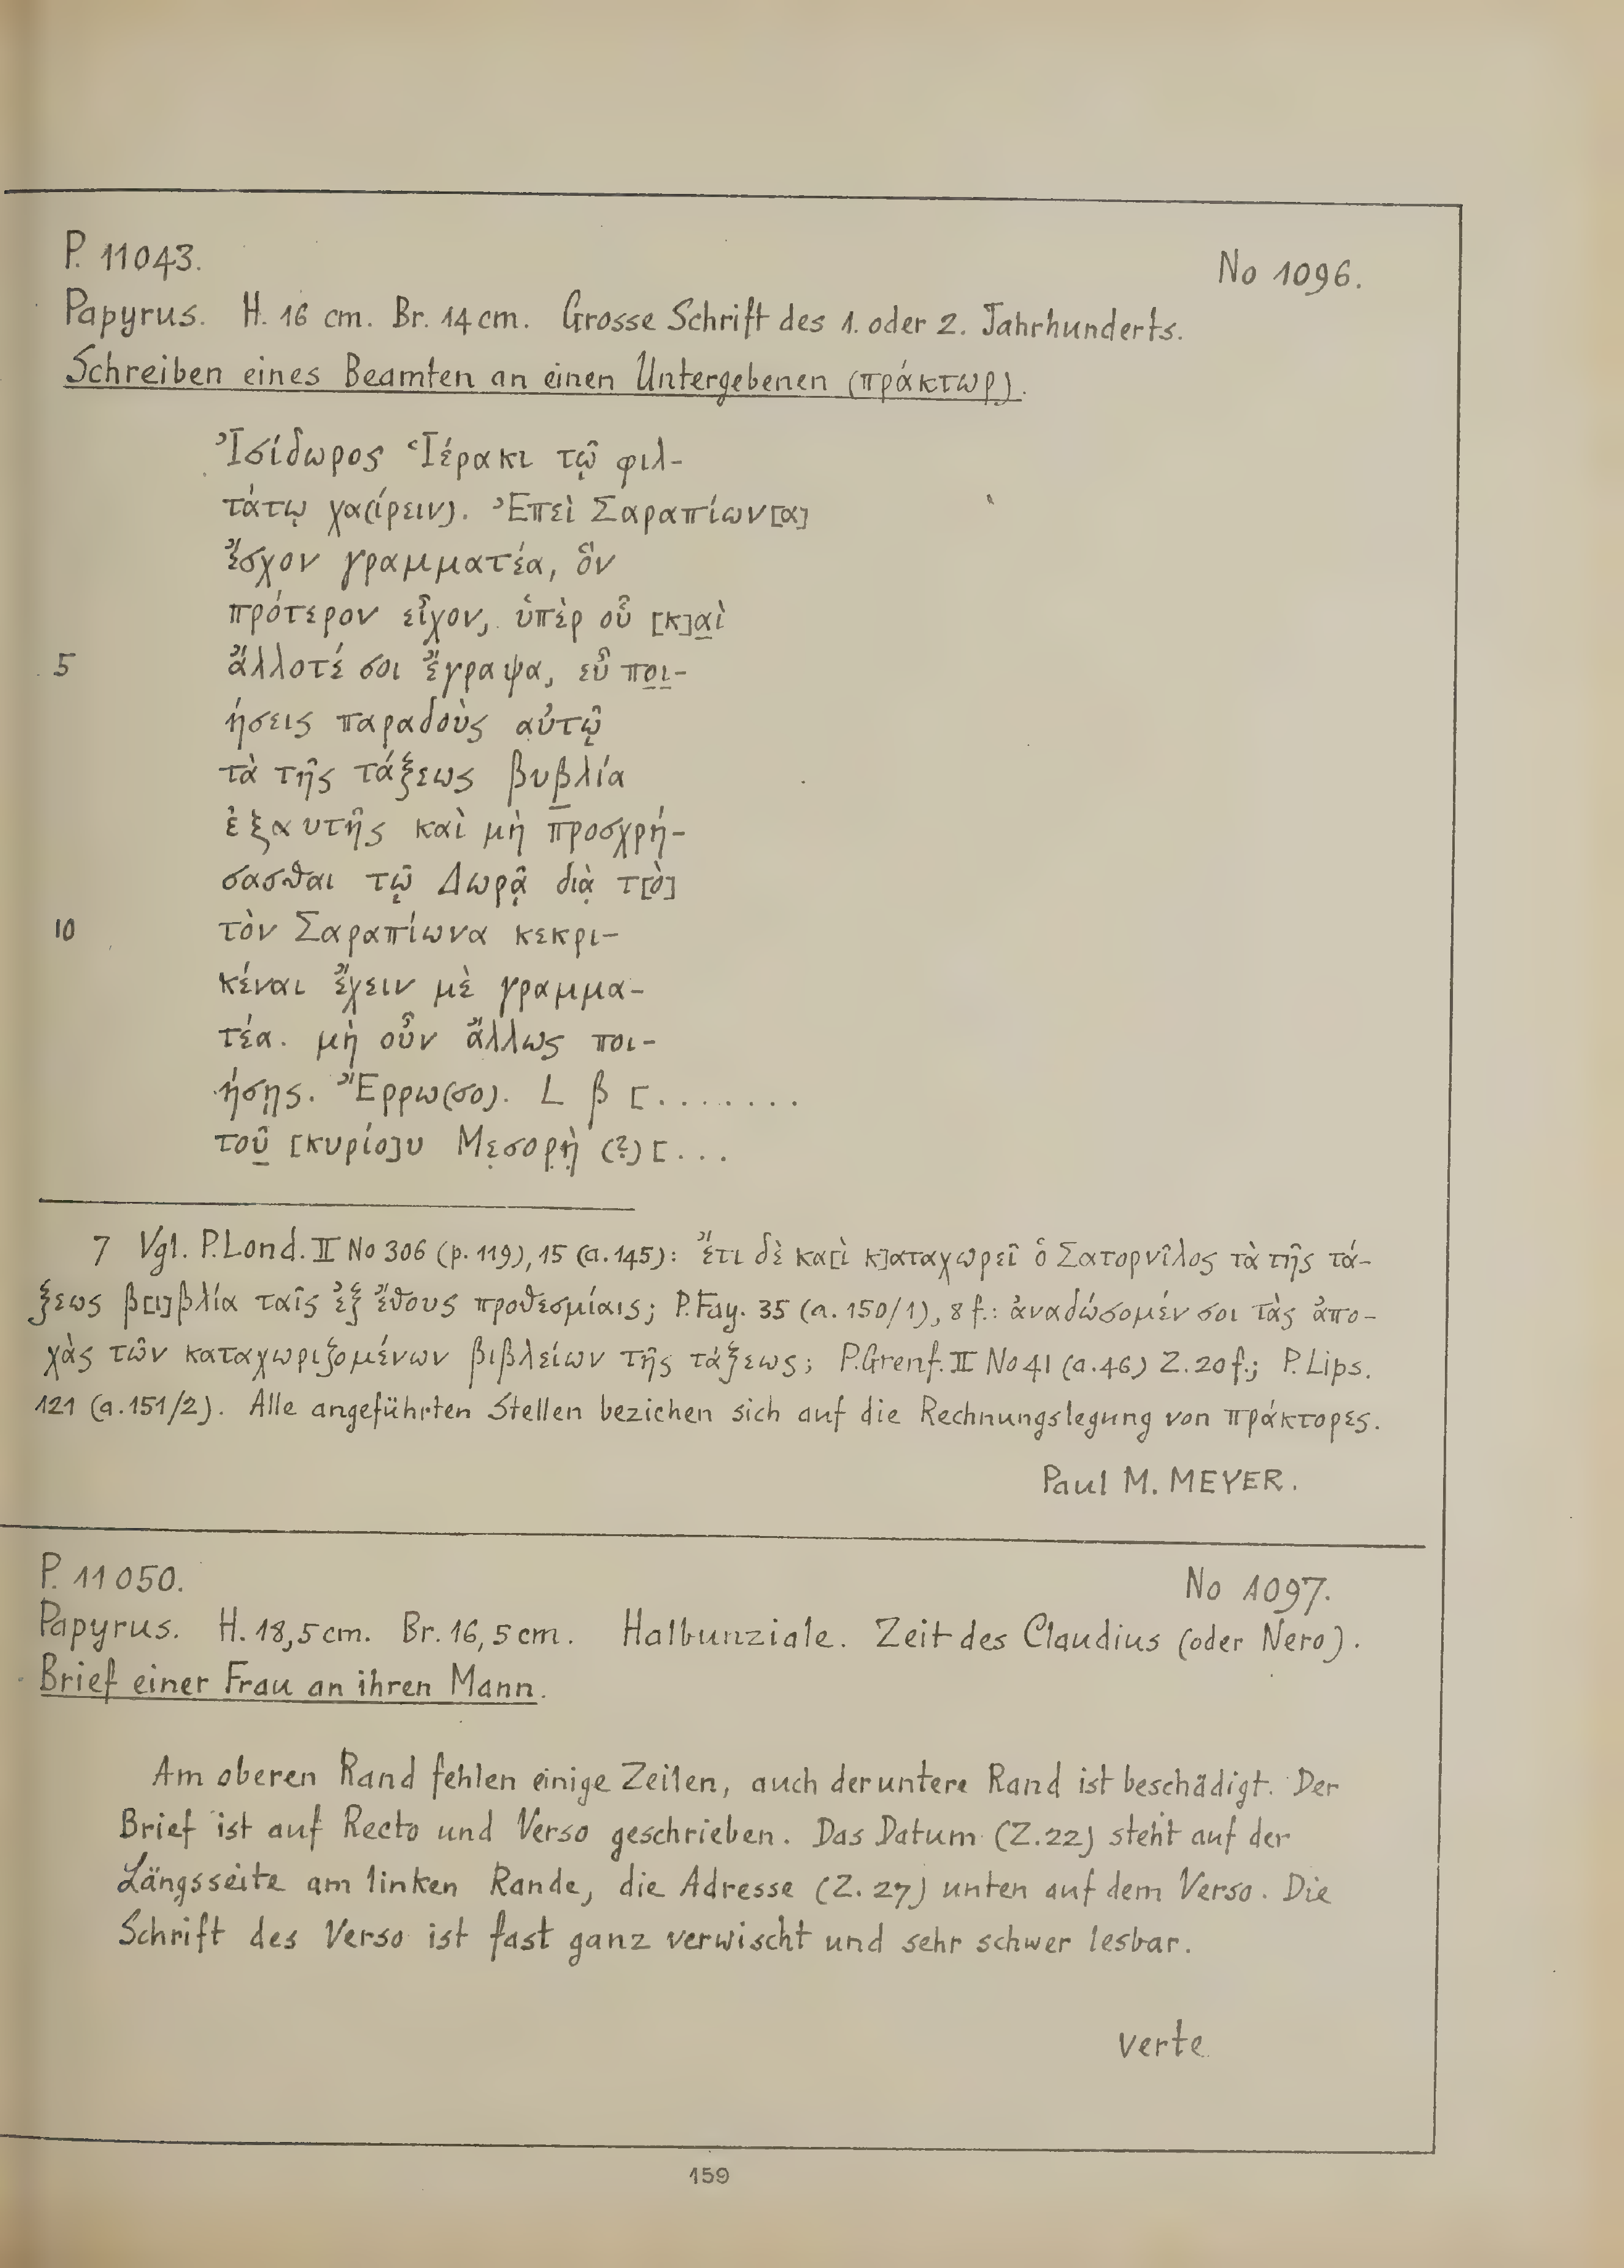 P. 11043.
No 1096.
Papyrus. H. 16 cm. Br. 14 cm. Grosse Schrift des 1. oder 2. Jahrhunderts.
Schreiben eines Beamten an einen Untergebenen (πράκτωρ).
Ἰσίδωρος Ἱέρακι τῷ φιλ-
τάτῳ χα(ίρειν). Ἐπεὶ Σαραπίων[α]
ἔσχον γραμματέα, ὃν
πρότερον εἶχον, ὑπὲρ οὗ [κ]α̣ὶ
5 ἄλλοτέ σοι ἔγραψα, εὖ πο̣ι̣-
ήσεις παραδοὺς αὐτῷ
τὰ τῆς τάξεως βυβλία
ἐξαυτῆς καὶ μὴ προσχρή-
σασθαι τῷ Δωρᾷ διὰ̣ τ[ὸ]
10 τὸν Σαραπίωνα κεκρι-
κέναι ἔχειν μὲ γραμμα-
τέα. μὴ οὖν ἄλλως ποι-
ήσῃς. Ἔρρω(σο). L β [.......
τοῦ̣ [κυρίο]υ Με̣σορ̣ὴ̣ (?) [...
7 Vgl. P. Lond. II No 306 (p. 119), 15 (a. 145): ἔτι δὲ κα[ὶ κ]αταχωρεῖ ὁ Σατορνῖλος τὰ τῆς τά-
ξεως β[ι]βλία ταῖς ἐξ ἔθους προθεσμίαις; P. Fay. 35 (a. 150/1), 8 f.: ἀναδώσομέν σοι τὰς ἀπο-
χὰς τῶν καταχωριζομένων βιβλείων τῆς τάξεως; P. Grenf. II No 41 (a. 46) Z. 20 f.; P. Lips.
121 (a. 151/2). Alle angeführten Stellen beziehen sich auf die Rechnungslegung von πράκτορες.
Paul M. MEYER.
P. 11050.
No 1097.
Papyrus. H. 18,5 cm. Br. 16,5 cm. Halbunziale. Zeit des Claudius (oder Nero).
Brief einer Frau an ihren Mann.
Am oberen Rand fehlen einige Zeilen, auch der untere Rand ist beschädigt. Der
Brief ist auf Recto und Verso geschrieben. Das Datum (Z. 22) steht auf der
Längsseite am linken Rande, die Adresse (Z. 27) unten auf dem Verso. Die
Schrift des Verso ist fast ganz verwischt und sehr schwer lesbar.
verte
159